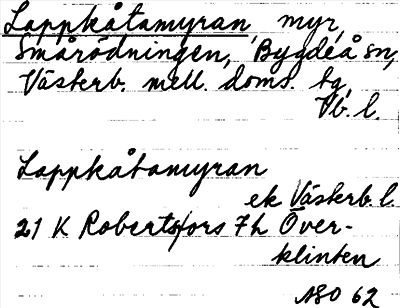 Lappkåtamyran, myr,
Smårödningen, Bygdeå sn,
Västerb. mell. doms. tg,
Vb. l.
Lappkåtamyran
ek Västerb. l.
21 K Robertsfors 7h Över-
klinten
NSO 62